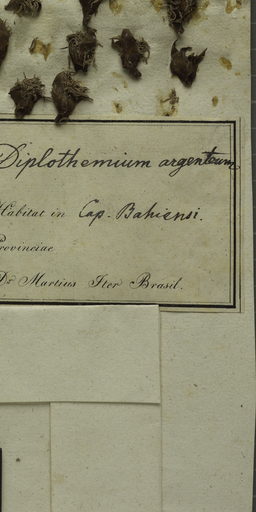 Diplothemium argenteum
Habitat in Cap. Bahiensi.
Provinciae
Dr Martius Iter Brasil.